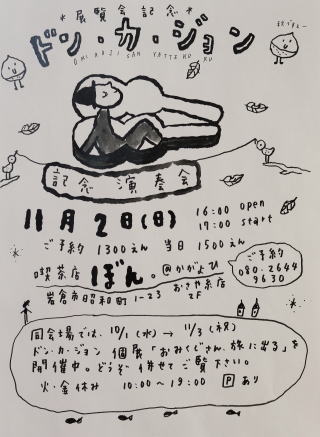 *展覧会記念*
ドン・カ・ジョン
OMI KUJI SAN YATTE KU RU
記念演奏会
11月2日(日)
16:00 open
17:00 start
ご予約 1300えん 当日 1500えん
喫茶店 ぼん。@かがよひ
岩倉市昭和町 1-23 おさや糸店 2F
ご予約
080-2644
9630
同会場では、10/1(水)→11/3(祝)
ドン・カ・ジョン 個展「おみくじさん、旅に出る」を
開催中。どうぞ 併せてご覧下さい。
火・金休み 10:00〜19:00 P あり